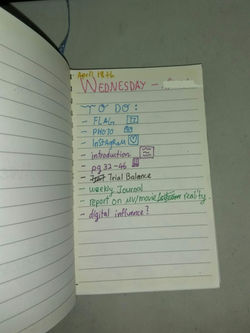 April 18th
WEDNESDAY -
TO DO:
- FLAG
- PHOTO
- INSTAGRAM
- introduction
- pg 32-46
- Trial Balance
- weekly Journal
- report on MV/movie reality.
- digital influence?